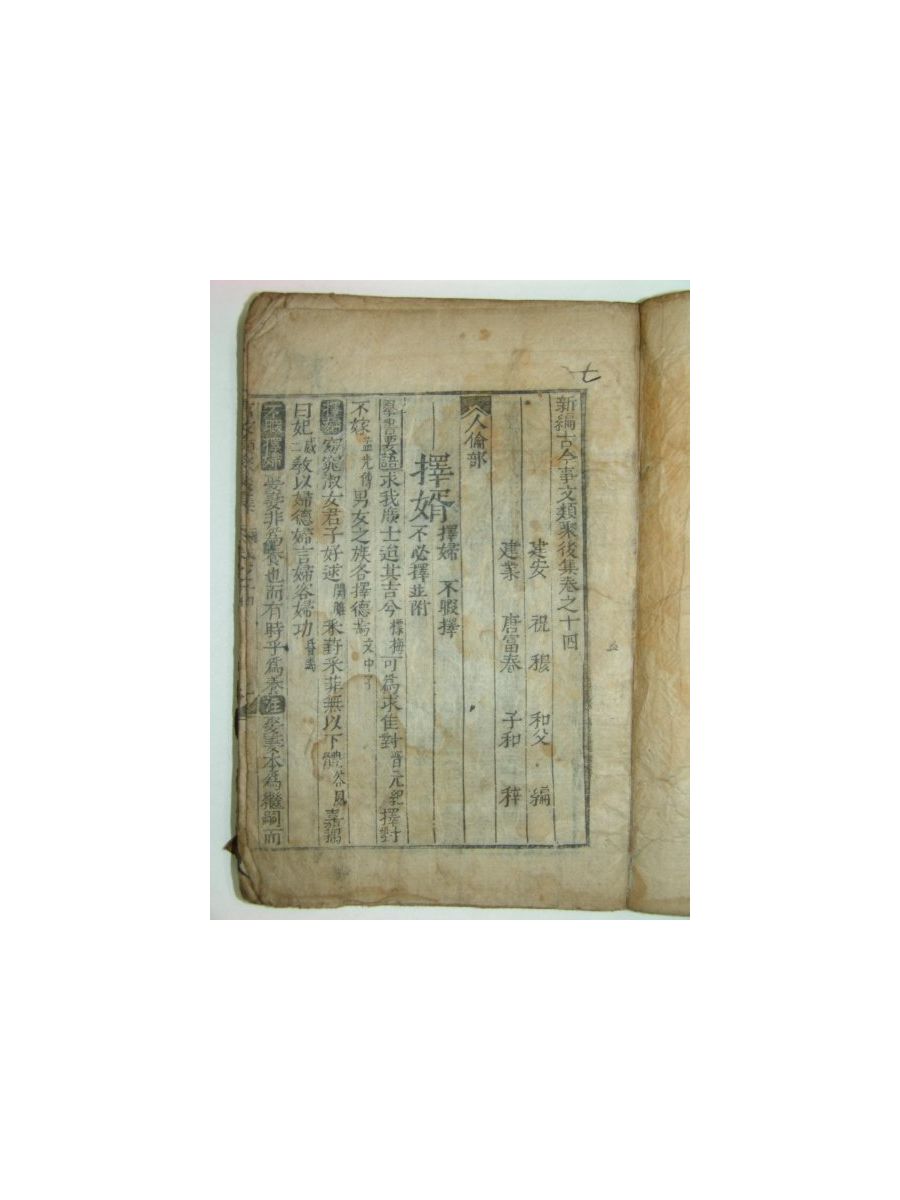 七
新編古今事文類聚後集卷之十四
建安 祝 穆 和父 編
建業 唐富春 子和 梓
人倫部
擇婿 擇婦 不暇擇
不必擇並附
羣書要語求我庻士迨其吉兮摽梅可爲求佳對晋元紀擇對
不嫁孟光傳男女之族各擇德焉文中子
擇婦窈窕淑女君子好逑関雎采葑采菲無以下體谷風嘉耦
曰妃威二敎以婦德婦言婦容婦功昏義
不暇擇婦娶妻非爲養也而有時乎爲養注娶妻本爲繼嗣而